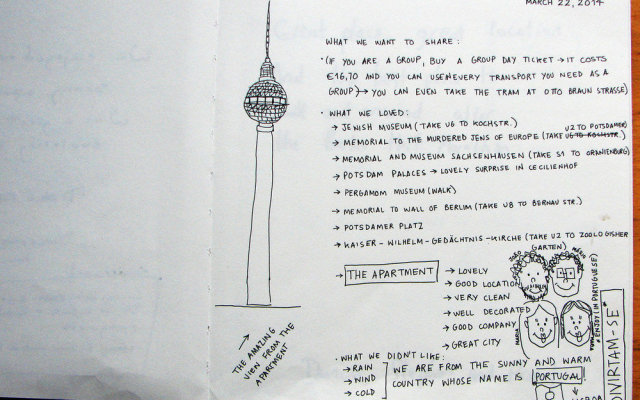 MARCH 22, 2014
WHAT WE WANT TO SHARE:
• (IF YOU ARE A GROUP, BUY A GROUP DAY TICKET → IT COSTS
€16,70 AND YOU CAN USE EVERY TRANSPORT YOU NEED AS A
GROUP) → YOU CAN EVEN TAKE THE TRAM AT OTTO BRAUN STRASSE)
• WHAT WE LOVED:
→ JEWISH MUSEUM (TAKE U6 TO KOCHSTR.)
→ MEMORIAL TO THE MURDERED JEWS OF EUROPE (TAKE U6 TO KOCHSTR.)
U2 TO POTSDAMER
→ MEMORIAL AND MUSEUM SACHSENHAUSEN (TAKE S1 TO ORANIENBURG)
→ POTSDAM PALACES → LOVELY SURPRISE IN CECILIENHOF
→ PERGAMOM MUSEUM (WALK)
→ MEMORIAL TO WALL OF BERLIM (TAKE U8 TO BERNAU STR.)
→ POTSDAMER PLATZ
→ KAISER-WILHELM-GEDÄCHTNIS-KIRCHE (TAKE U2 TO ZOOLOGISHER
GARTEN)
→ THE APARTMENT
→ LOVELY
→ GOOD LOCATION
→ VERY CLEAN
→ WELL DECORATED
→ GOOD COMPANY
→ GREAT CITY
THE AMAZING
VIEW FROM THE
APARTMENT
• WHAT WE DIDN'T LIKE:
→ RAIN
→ WIND
→ COLD
WE ARE FROM THE SUNNY AND WARM
COUNTRY WHOSE NAME IS PORTUGAL.
DIVIRTAM-SE*
*ENJOY (IN PORTUGUESE)